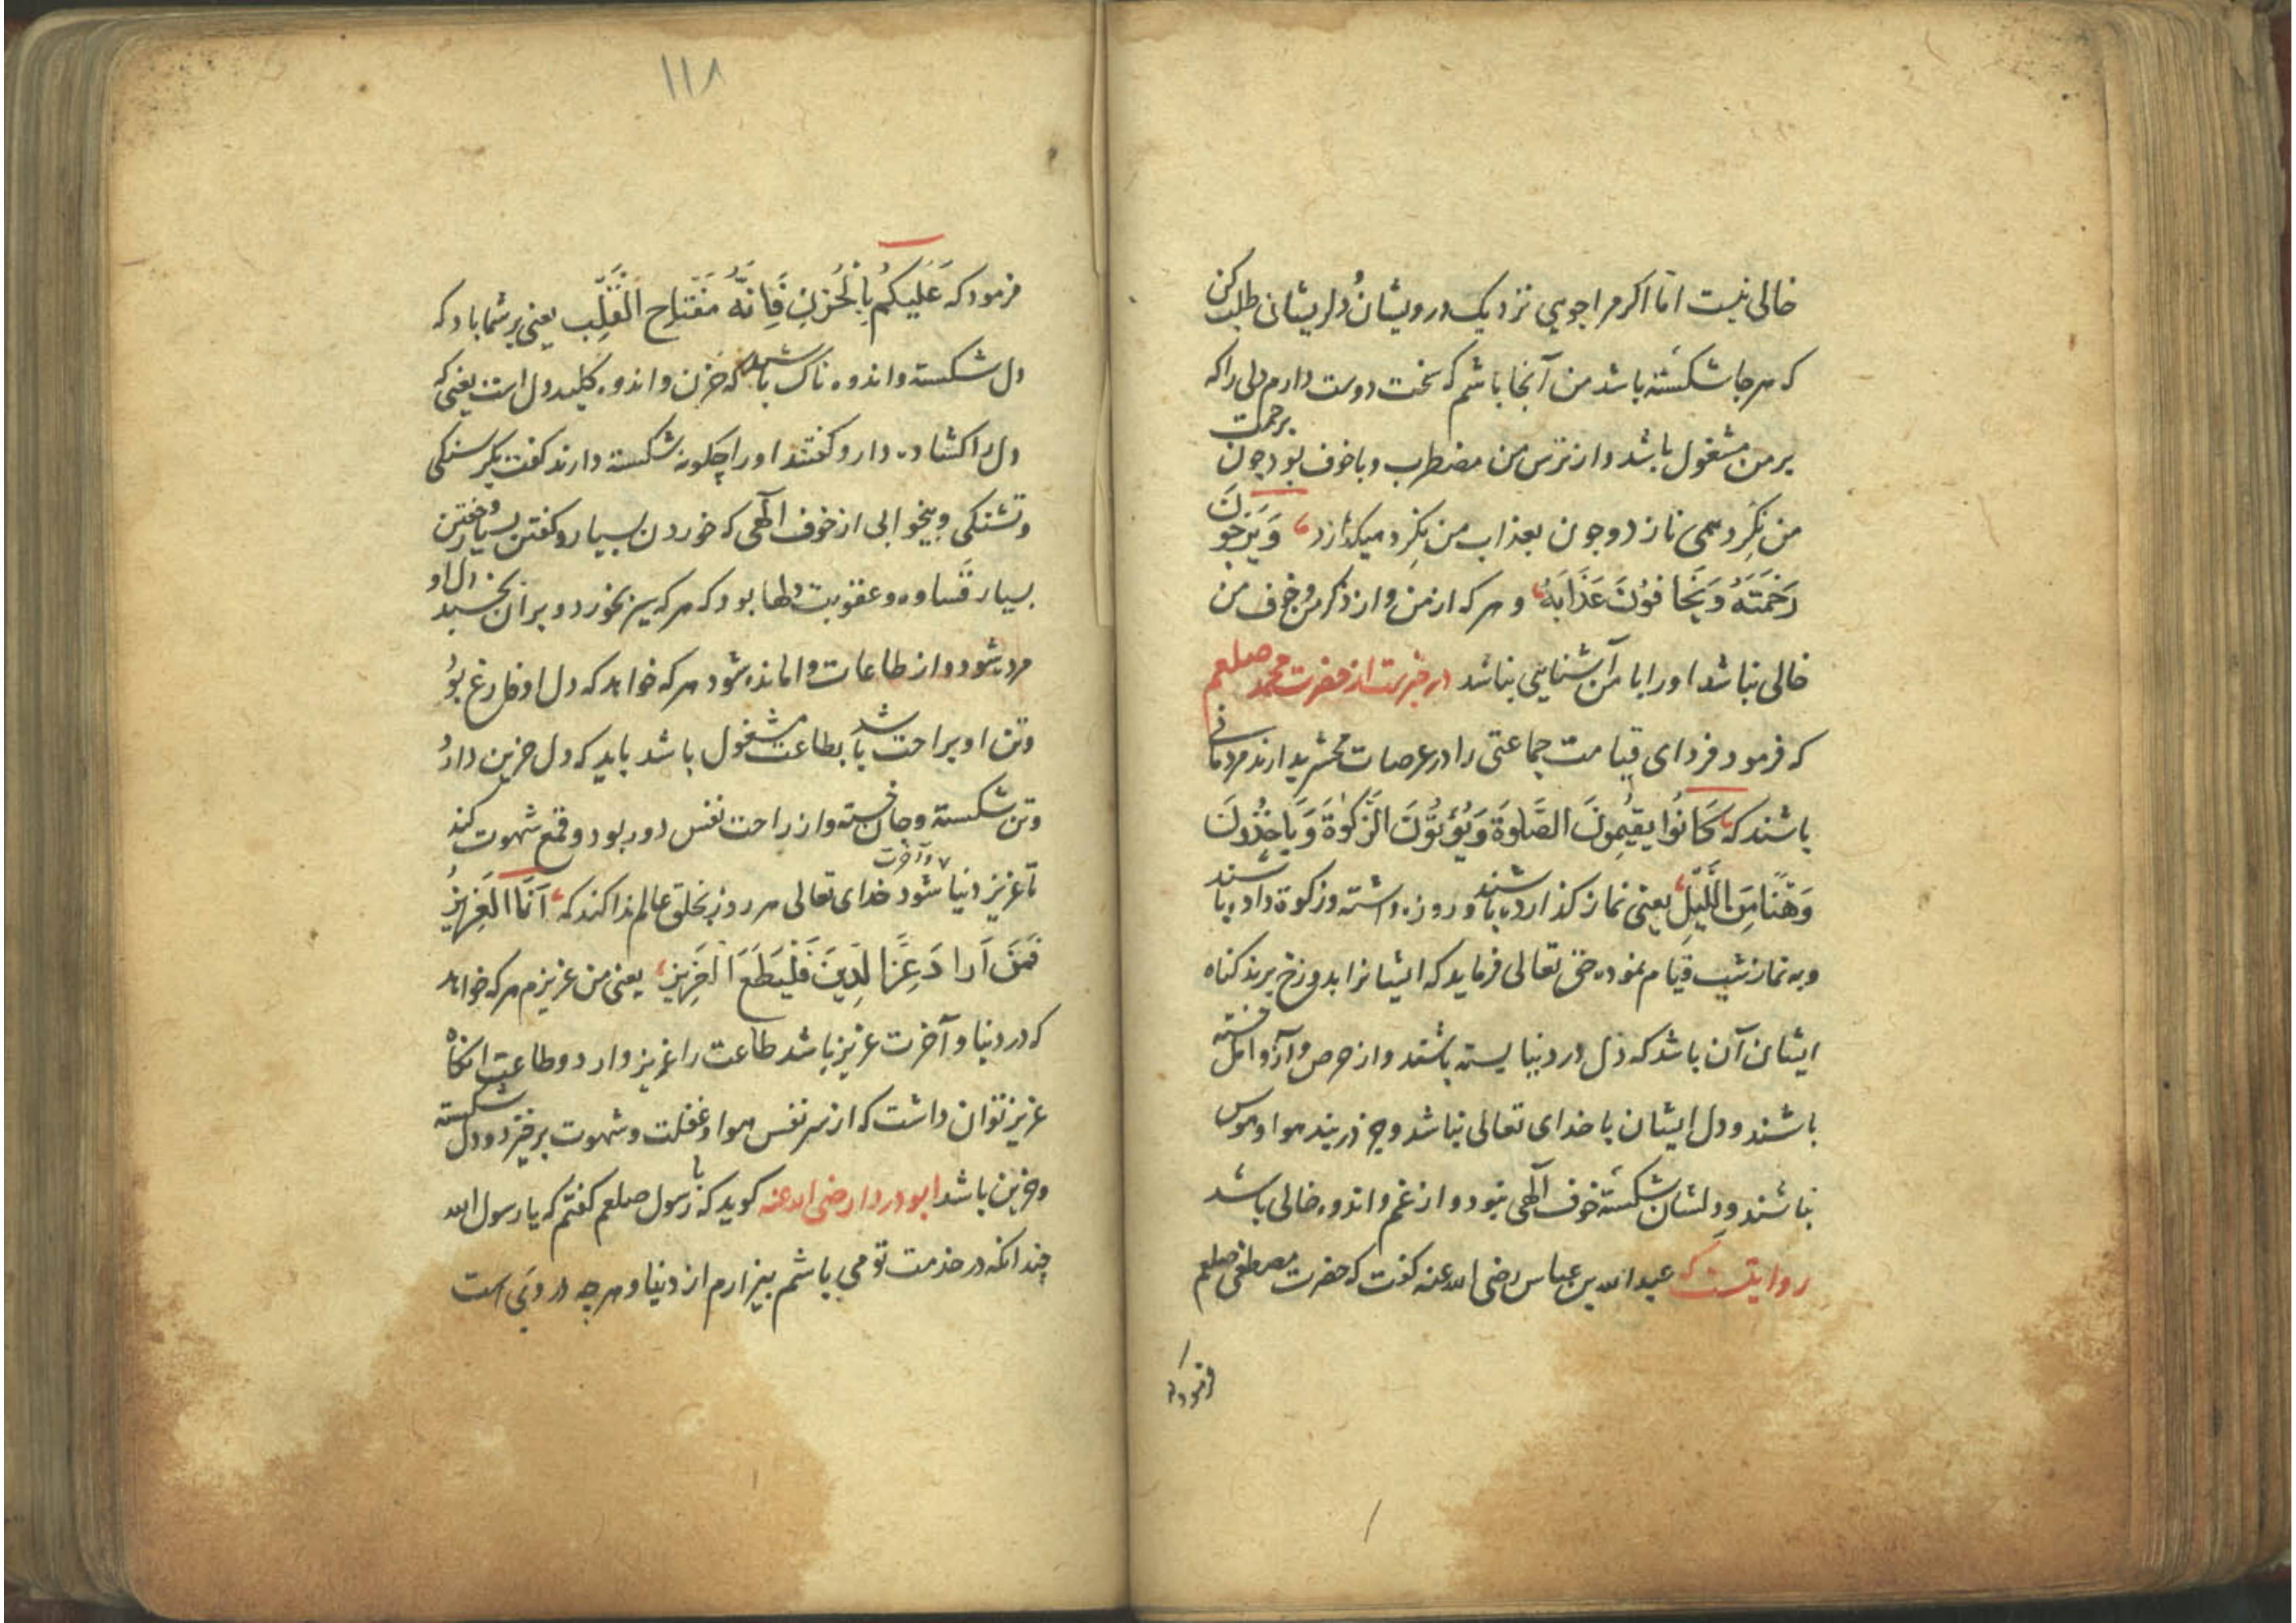 خالی نیست اما اکر مرا جویی نزدیک درویشان و دلریشانی طلب کن
که هرجا شکسته باشد من آنجا باشم که سخت دوست دارم دلی را که
بر من مشغول باشد و از ترس من مضطرب و با خوف بود چون برحمت
من نکرد همی نازد و چون بعذاب من نکرد میکدازد وَیَرْجُونَ
رَحْمَتَهُ وَیَخَافُونَ عَذَابَهُ و هر که از من و از ذکر من و خوف من
خالی نباشد او را با من آشنایی نباشد در خبرست از حضرت محمد صلعم
که فرمود فردای قیامت جماعتی را در عرصات محشر بیدارند مردمانی
باشند که کَانُوا یُقِیمُونَ الصَّلوَةَ وَیُؤْتُونَ الزَّکوٰةَ وَیَاخُذُونَ
وَهْنًا مِنَ اللَّیْلِ یعنی نماز کذارده باشند و روزه داشته و زکوة داده باشند
و به نماز شب قیام نموده حق تعالی فرماید که ایشانرا بدوزخ برید کناه
ایشان آن باشد که دل در دنیا بسته باشند و از حرص و آز و امل
باشند و دل ایشان با خدای تعالی نباشد و جز در بند هوا و هوس
نباشند و دلشان شکسته خوف آلهی نبود و از غم و اندوه خالی باشد
روایتست که عبد الله بن عباس رضی الله عنه کفت که حضرت مصطفی صلعم
فرمود که
۱۱۸
فرمود که عَلَیْکُمْ بِالْحُزْنِ فَاِنَّهُ مِفْتَاح الْقَلْبِ یعنی بر شما باد که
دل شکسته و اندوه ناک باشید که حزن و اندوه کلید دل است یعنی که
دل را کشاده دارد کفتند او را چکونه شکسته دارند کفت بکرسنکی
و تشنکی و بیخوابی از خوف آلهی که خوردن بسیار و کفتن بسیار و خفتن
بسیار قساوه و عقوبت دلها بود که هر که سیر بخورد و بر آن بخسبد دل او
مرده شود و از طاعات وامانده شود هر که خواهد که دل او فارغ بود
و تن او براحت باشد بطاعت مشغول باشد باید که دل حزین دارد
و تن شکسته و جان خسته و از راحت نفس دور بود و قمع شهوت کند
تا عزیز دنیا و آخرت شود خدای تعالی هر روز بخلق عالم ندا کند که اَنَا الْعَزِیزُ
فَمَنْ اَرَادَ عِزَّ الدَّارَیْنِ فَلْیُطِعِ الْعَزِیزَ یعنی من عزیزم هر که خواهد
که در دنیا و آخرت عزیز باشد طاعت را عزیز دارد و طاعت انکاه
عزیز توان داشت که از سر نفس هوا و غفلت و شهوت برخیزد و دل شکسته
و حزین باشد ابو دردا رضی الله عنه کوید که با رسول صلعم کفتم که یا رسول الله
چندانکه در خدمت تو می باشم بیزارم از دنیا و هرچه در وی است